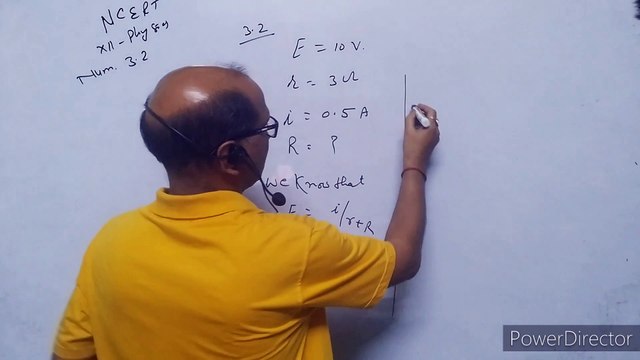 NCERT
XII - Physics
Num. 3.2
3.2
E = 10 V.
r = 3 Ω
i = 0.5 A
R = ?
We Know that
E = i/r+R
PowerDirector